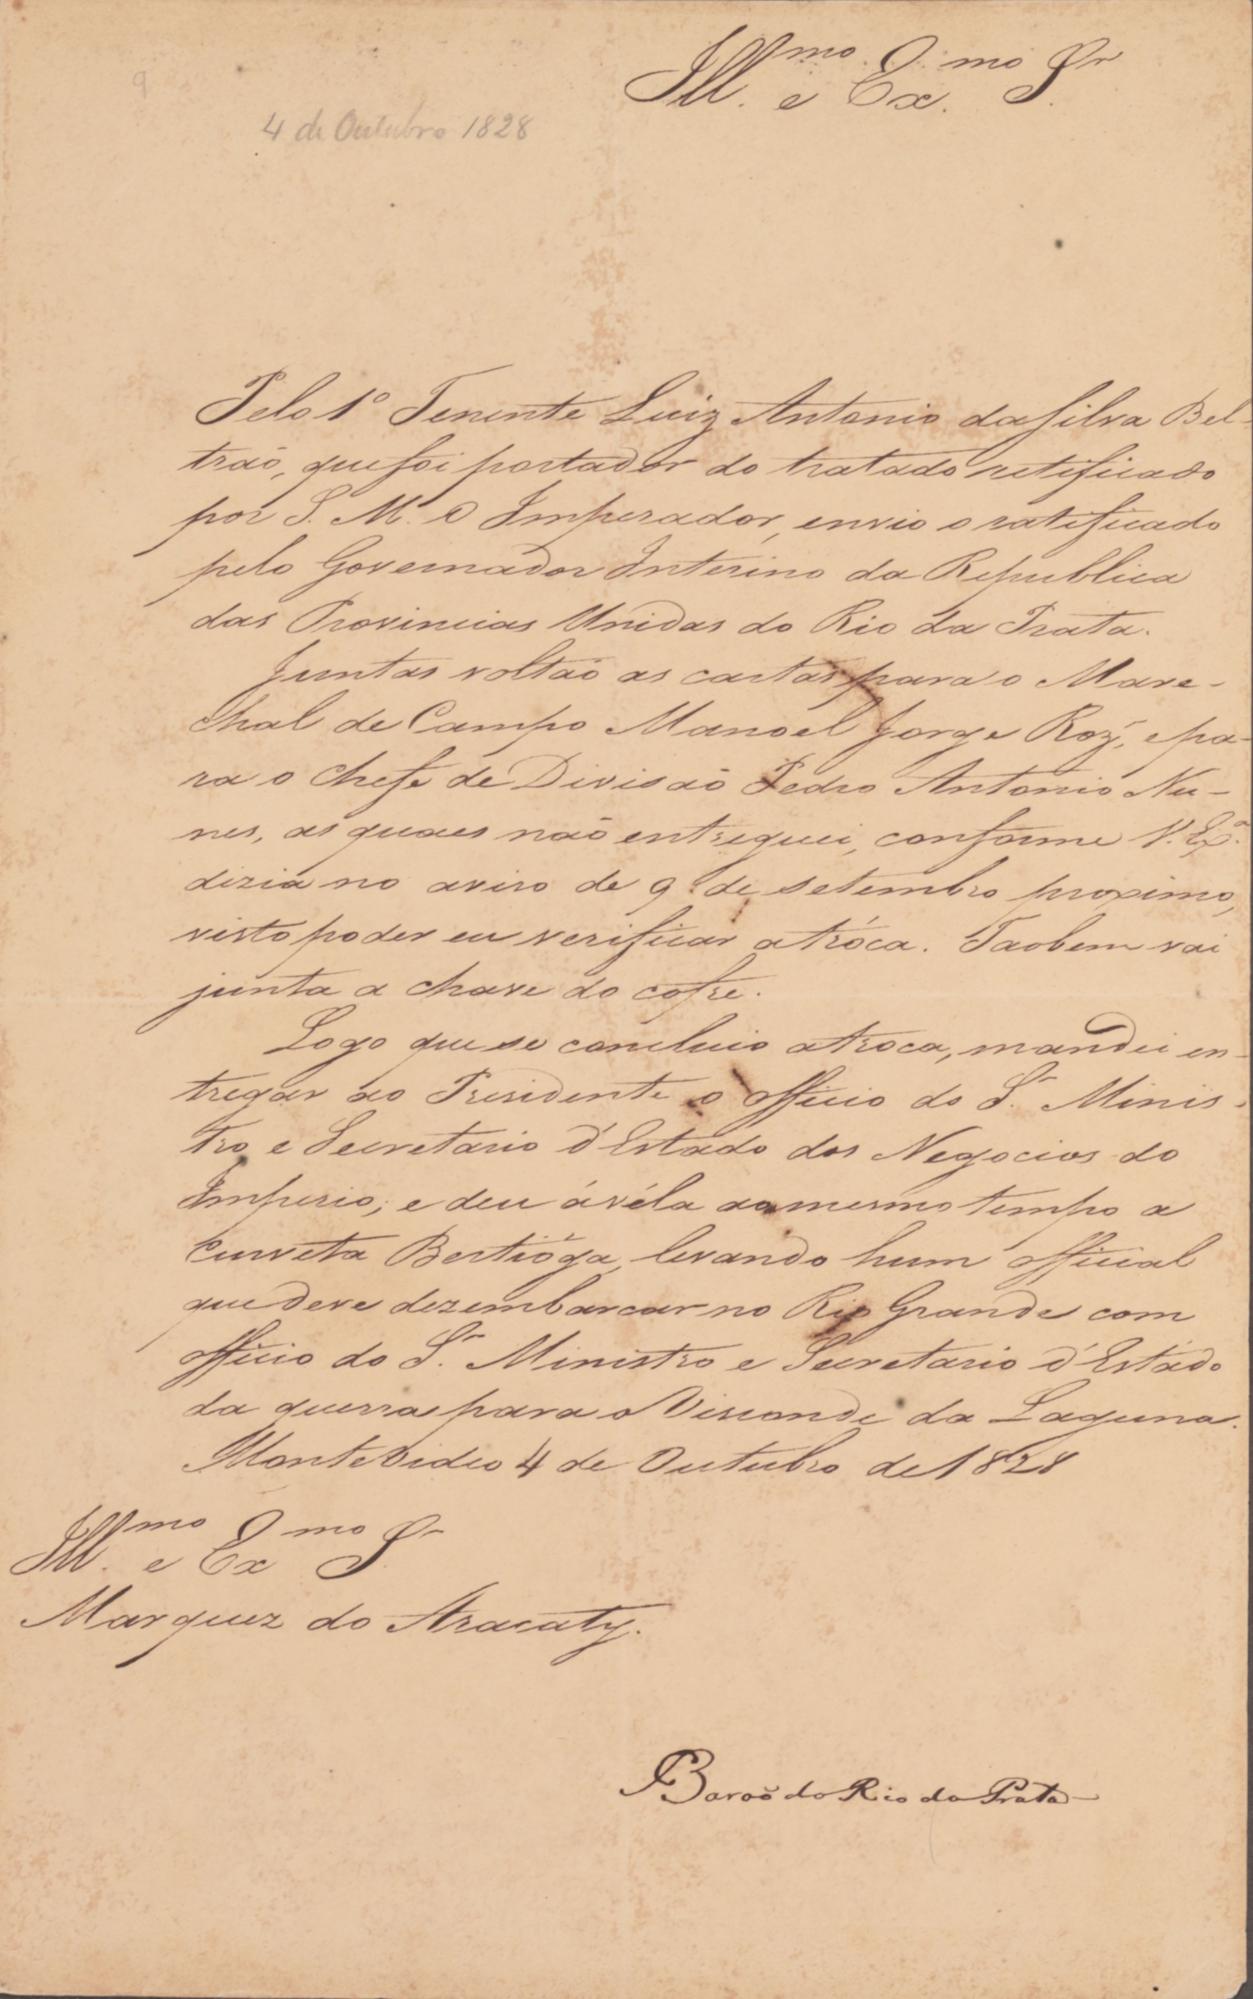 9
4 de Outubro 1828
Ill.mo e Ex.mo S.r
Pelo 1º Tenente Luiz Antonio da Silva Bel-
traõ, que foi portador do tratado retificado
por S. M. O Imperador, envio o ratificado
pelo Governador Interino da Republica
das Provincias Unidas do Rio da Prata.
Juntas voltaõ as cartas para o Mare-
chal de Campo Manoel Jorge Roz', e pa-
ra o Chefe de Divisaõ Pedro Antonio Nu-
nes, as quaes naõ entreguei, conforme V. Ex.ª
dizia no aviso de 9 de setembro proximo,
visto poder eu verificar a tróca. Taobem vai
junta a chave do cofre.
Logo que se concluio a troca, mandei en-
tregar ao Presidente o officio do S.r Minis-
tro e Secretario d'Estado dos Negocios do
Imperio; e deu á véla ao mesmo tempo a
Curveta Bertióga, levando hum official
que deve dezembarcar no Rio Grande com
officio do S.r Ministro e Secretario d'Estado
da guerra para o Visconde da Laguna.
Montevideo 4 de Outubro de 1828
Ill.mo e Ex.mo S.r
Marquez do Aracaty.
Baraõ do Rio da Prata